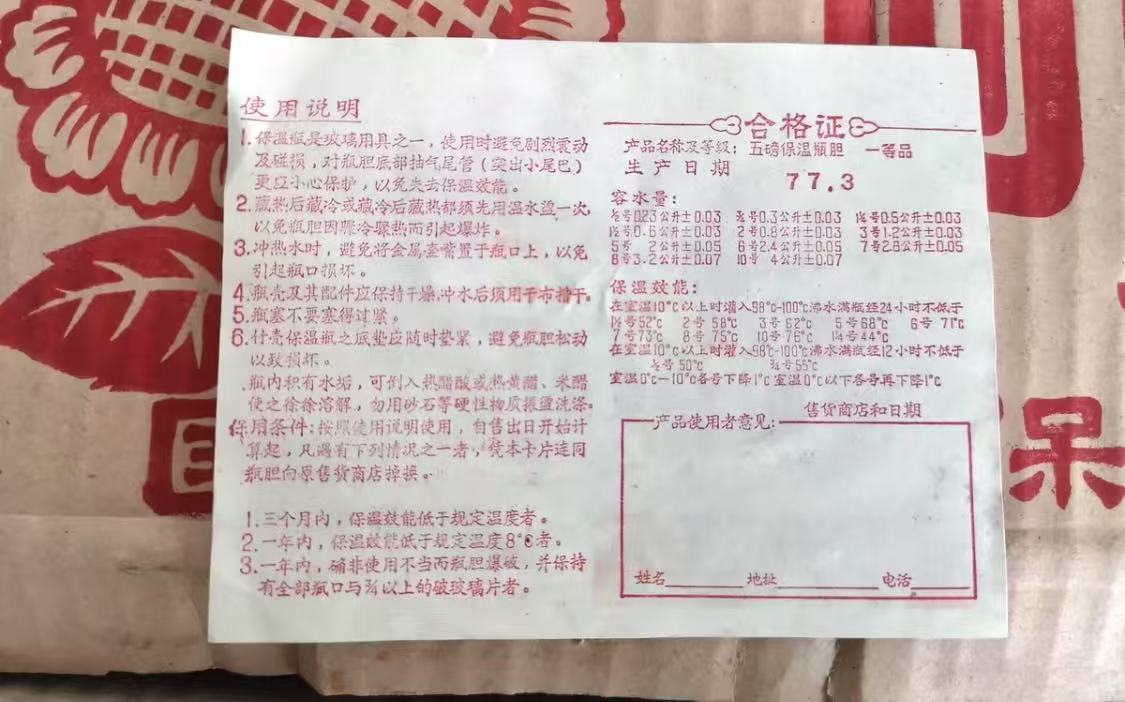 使用说明
1.保温瓶是玻璃用具之一，使用时避免剧烈震动
及碰损，对瓶胆底部抽气尾管（突出小尾巴）
更应小心保护，以免失去保温效能。
2.藏热后藏冷或藏冷后藏热都须先用温水盪一次，
以免瓶胆因骤冷骤热而引起爆炸。
3.冲热水时，避免将金属壶嘴置于瓶口上，以免
引起瓶口损坏。
4.瓶壳及其配件应保持干燥，冲水后须用干布揩干。
5.瓶塞不要塞得过紧。
6.竹壳保温瓶之底垫应随时垫紧，避免瓶胆松动
以致损坏。
瓶内积有水垢，可倒入热醋酸或热黄醋、米醋
使之徐徐溶解，勿用砂石等硬性物质振盪洗涤。
保用条件：按照使用说明使用，自售出日开始计
算起，凡遇有下列情况之一者，凭本卡片连同
瓶胆向原售货商店掉换。
1.三个月内，保温效能低于规定温度者。
2.一年内，保温效能低于规定温度8℃者。
3.一年内，确非使用不当而瓶胆爆破，并保持
有全部瓶口与¾以上的破玻璃片者。
合格证
产品名称及等级：五磅保温瓶胆 一等品
生产日期 77.3
容水量：
0.23公升±0.03 ¾号0.3公升±0.03 0.5公升±0.03
0.6公升±0.03 2号0.8公升±0.03 3号1.2公升±0.03
5号 2公升±0.05 6号2.4公升±0.05 7号2.8公升±0.05
8号3.2公升±0.07 10号 4公升±0.07
保温效能：
在室温10℃以上时灌入98℃-100℃沸水满瓶经24小时不低于
1½号52℃ 2号58℃ 3号62℃ 5号68℃ 6号 71℃
7号73℃ 8号 75℃ 10号76℃ 44℃
在室温10℃以上时灌入98℃-100℃沸水满瓶经12小时不低于
½号50℃ ¾号55℃
室温0℃—10℃各号下降1℃室温0℃以下各号再下降1℃
售货商店和日期
产品使用者意见：
姓名 地址 电话